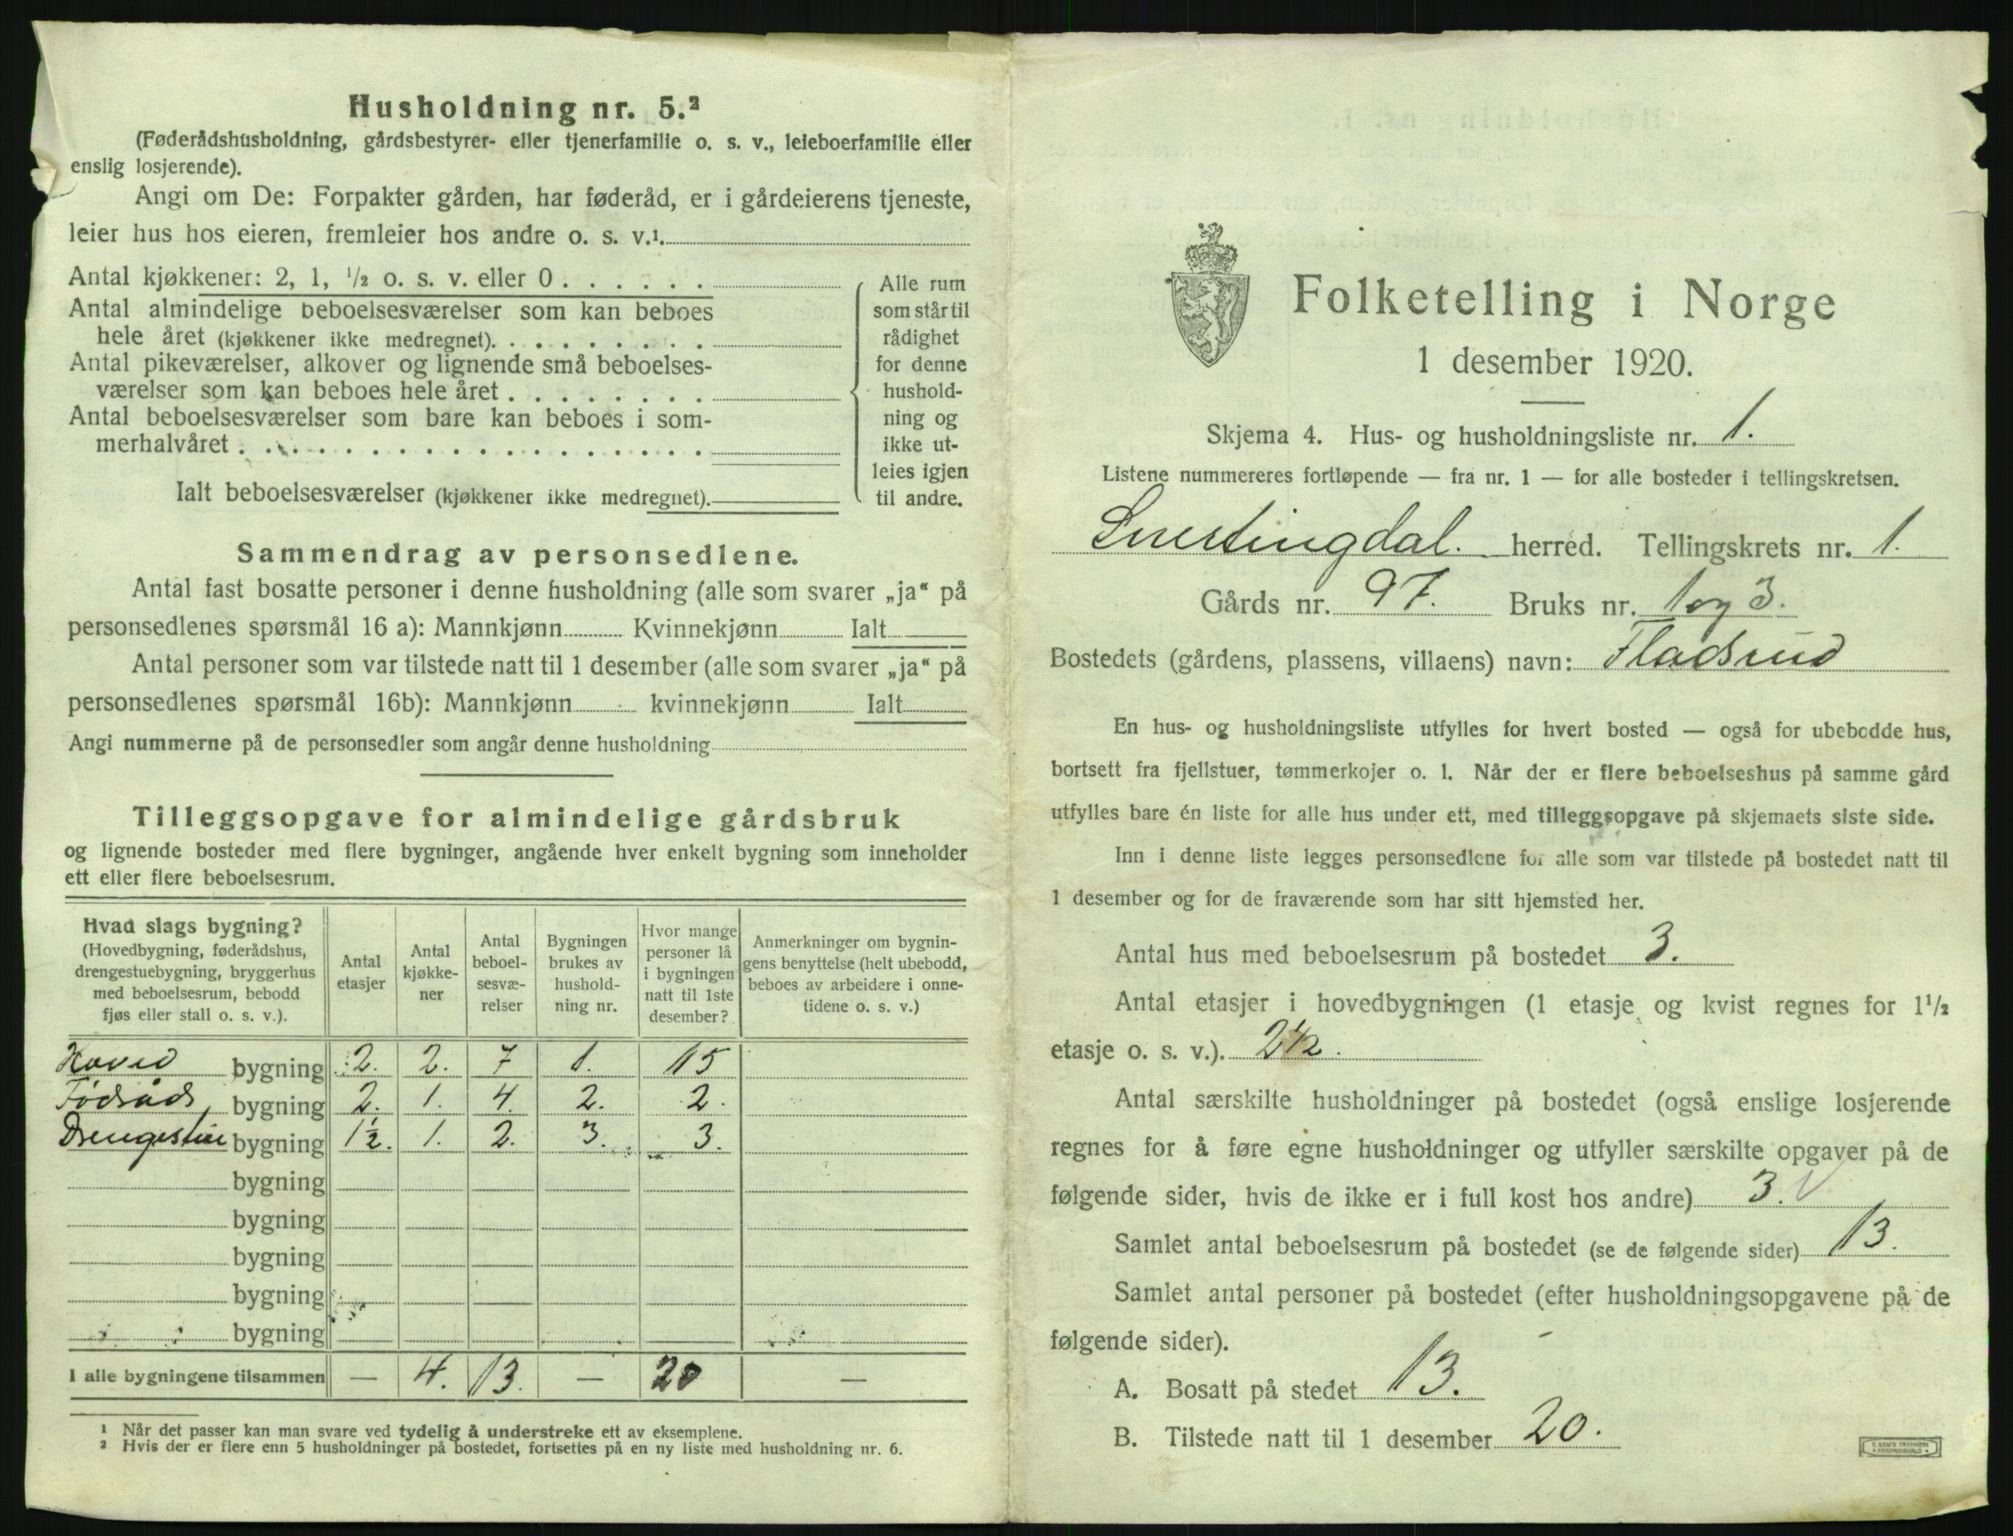 Husholdning nr. 5.²
(Føderådshusholdning, gårdsbestyrer- eller tjenerfamilie o. s. v., leieboerfamilie eller
enslig losjerende).
Angi om De: Forpakter gården, har føderåd, er i gårdeierens tjeneste,
leier hus hos eieren, fremleier hos andre o. s. v.¹.
Antal kjøkkener: 2, 1, ¹/₂ o. s. v. eller 0 . . . . . .
Antal almindelige beboelsesværelser som kan beboes
hele året (kjøkkener ikke medregnet). . . . . . . . .
Antal pikeværelser, alkover og lignende små beboelses-
værelser som kan beboes hele året . . . . . . . .
Antal beboelsesværelser som bare kan beboes i som-
merhalvåret . . . . . . . . . . . . . . . . . .
Ialt beboelsesværelser (kjøkkener ikke medregnet).
Alle rum
som står til
rådighet
for denne
hushold-
ning og
ikke ut-
leies igjen
til andre.
Sammendrag av personsedlene.
Antal fast bosatte personer i denne husholdning (alle som svarer „ja“ på
personsedlenes spørsmål 16 a): Mannkjønn Kvinnekjønn Ialt
Antal personer som var tilstede natt til 1 desember (alle som svarer „ja“ på
personsedlenes spørsmål 16b): Mannkjønn kvinnekjønn Ialt
Angi nummerne på de personsedler som angår denne husholdning
Tilleggsopgave for almindelige gårdsbruk
og lignende bosteder med flere bygninger, angående hver enkelt bygning som inneholder
ett eller flere beboelsesrum.
Hvad slags bygning?
(Hovedbygning, føderådshus,
drengestuebygning, bryggerhus
med beboelsesrum, bebodd
fjøs eller stall o. s. v.).
Antal
etasjer
Antal
kjøkke-
ner
Antal
beboel-
sesvæ-
relser
Bygningen
brukes av
hushold-
ning nr.
Hvor mange
personer lå
i bygningen
natt til 1ste
desember?
Anmerkninger om bygnin-
gens benyttelse (helt ubebodd,
beboes av arbeidere i onne-
tidene o. s. v.)
Hoved bygning 2. 2. 7 1. 15
Födråds bygning 2. 1. 4. 2. 2.
Drengestue bygning 1½. 1. 2. 3. 3.
bygning
bygning
bygning
bygning
bygning
I alle bygningene tilsammen — 4. 13. — 20 —
¹ Når det passer kan man svare ved tydelig å understreke ett av eksemplene.
² Hvis der er flere enn 5 husholdninger på bostedet, fortsettes på en ny liste med husholdning nr. 6.
Folketelling i Norge
1 desember 1920.
Skjema 4. Hus- og husholdningsliste nr. 1.
Listene nummereres fortløpende — fra nr. 1 — for alle bosteder i tellingskretsen.
Snertingdal. herred. Tellingskrets nr. 1.
Gårds nr. 97. Bruks nr. 1 og 3.
Bostedets (gårdens, plassens, villaens) navn: Fladsrud
En hus- og husholdningsliste utfylles for hvert bosted — også for ubebodde hus,
bortsett fra fjellstuer, tømmerkojer o. l. Når der er flere beboelseshus på samme gård
utfylles bare én liste for alle hus under ett, med tilleggsopgave på skjemaets siste side.
Inn i denne liste legges personsedlene for alle som var tilstede på bostedet natt til
1 desember og for de fraværende som har sitt hjemsted her.
Antal hus med beboelsesrum på bostedet 3.
Antal etasjer i hovedbygningen (1 etasje og kvist regnes for 1¹/₂
etasje o. s. v.). 2½.
Antal særskilte husholdninger på bostedet (også enslige losjerende
regnes for å føre egne husholdninger og utfyller særskilte opgaver på de
følgende sider, hvis de ikke er i full kost hos andre) 3.
Samlet antal beboelsesrum på bostedet (se de følgende sider) 13.
Samlet antal personer på bostedet (efter husholdningsopgavene på de
følgende sider).
A. Bosatt på stedet 13.
B. Tilstede natt til 1 desember 20.